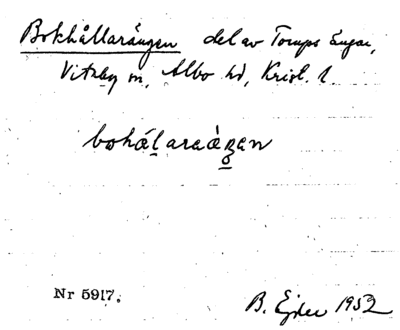 Bokhållarängen del av Torups ängar,
Vitaby sn, Albo hd, Krist. l
Nr 5917.
B. Ejder 1952